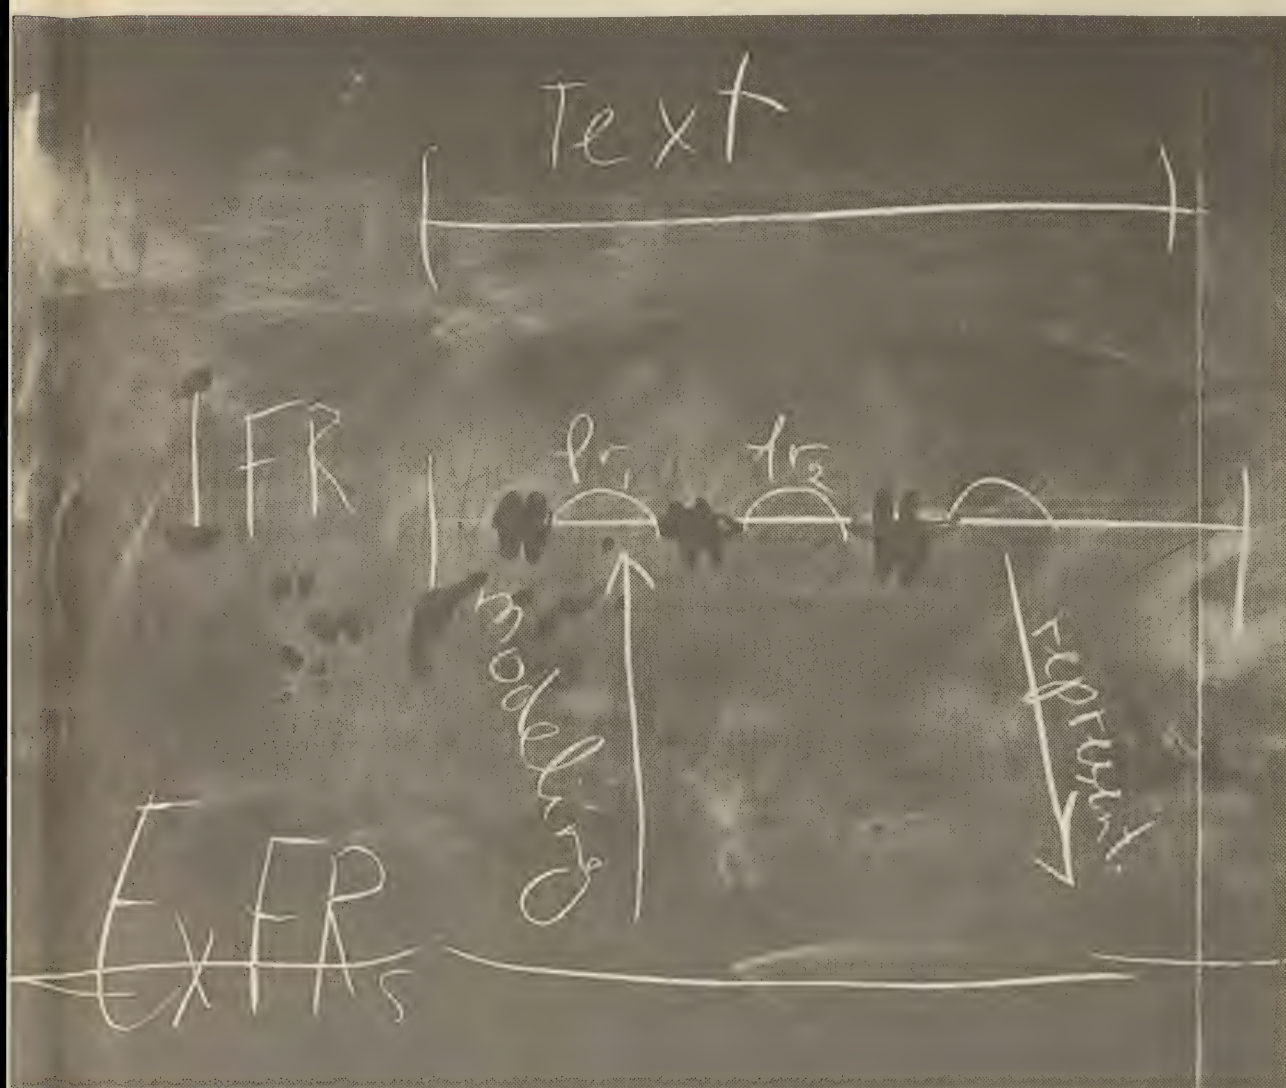 Text
IFR
fr₁ fr₂
modeling
represent.
ExFRs